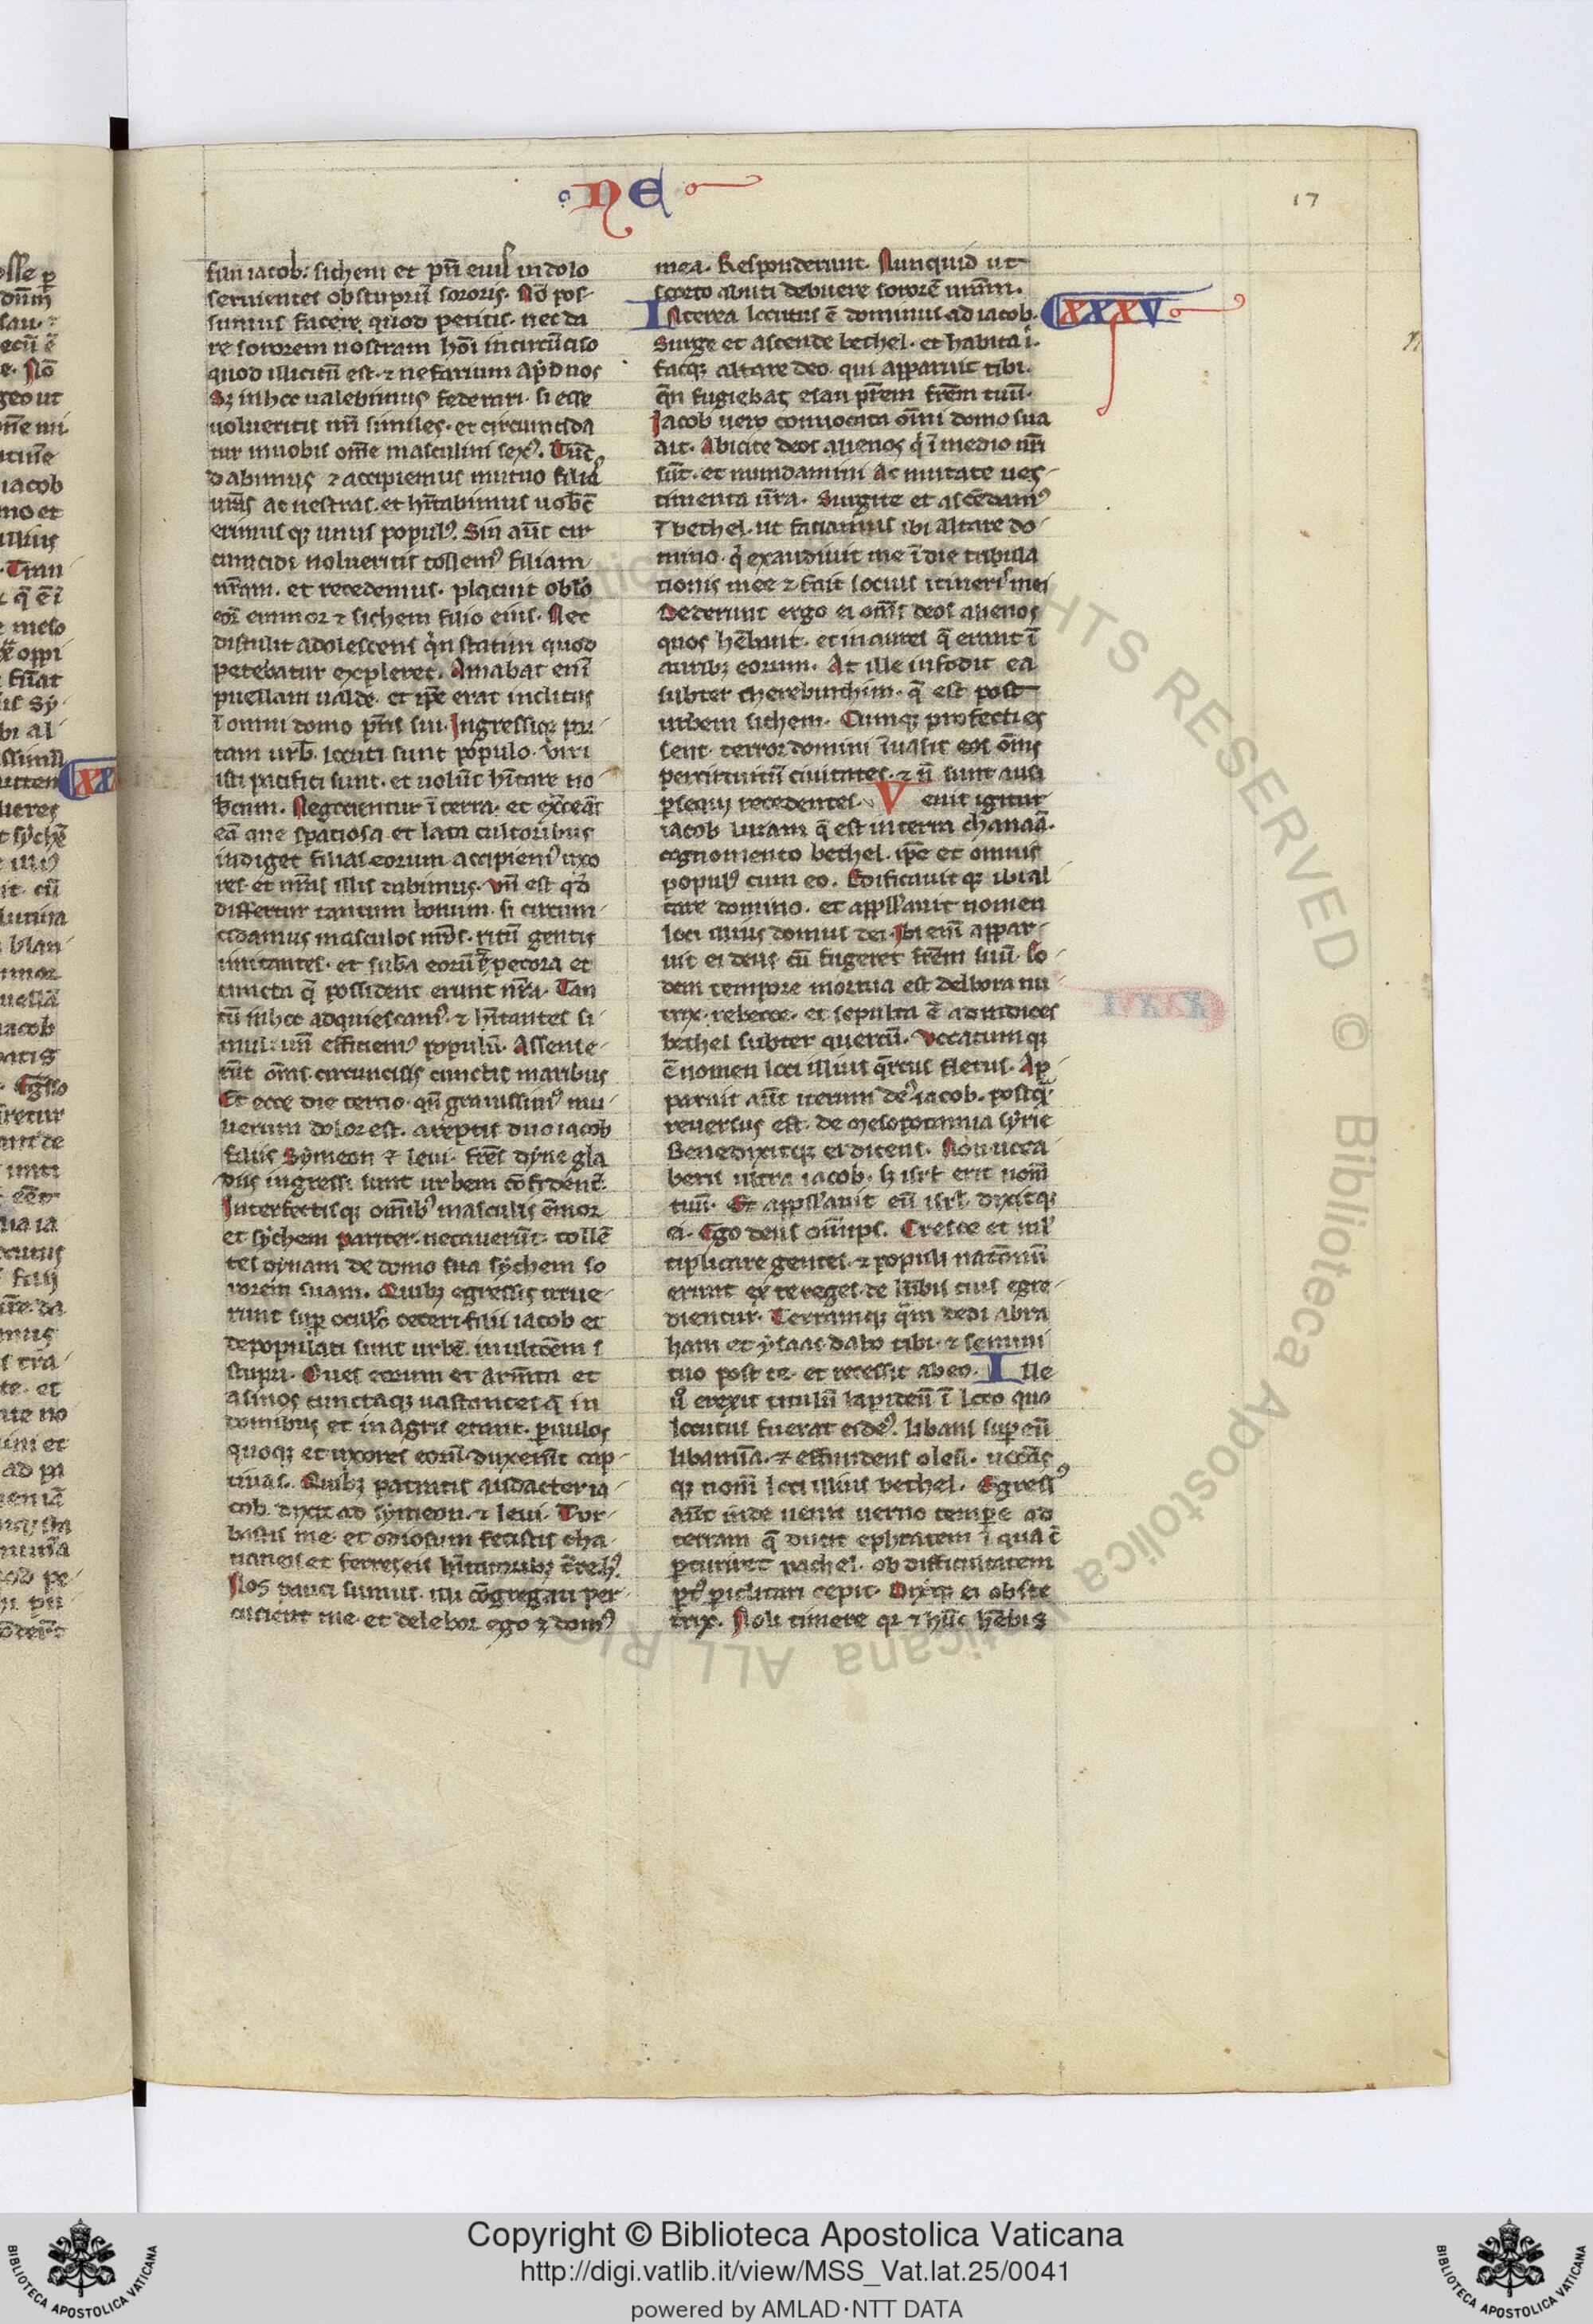 NE
17
filii iacob: sichem et pr̄i eius in dolo
seruientes ob stuprū sororis. Nō pos-
sumus facere quod petitis. nec da
re sororem nostram hōi incircūciso
quod illicitū est. ⁊ nefarium apd nos
Sꝫ in hoc ualebimus federari. si esse
uolueritis nr̄i similes. et circuncida
tur in uobis om̄e masculini sexꝰ. Tūc
dabimus ⁊ accipiemus mutuo filias
ur̄as ac nestras. et hītabimus uobc̄
erimusqꝫ unus populꝰ. Sin aūt cir
cuncidi nolueritis tollemꝰ filiam
nr̄am. et recedemus. placuit oblō
eoꝝ emmor ⁊ sichem filio eius. Nec
distulit adolescens qin statim quod
petebatur expleret. Amabat enī
puellam ualde. et ipe erat inclitus
ī omni domo pr̄is sui. Ingressiqꝫ por
tam urb̄. locuti sunt populo. viri
isti pacifici sunt. et uolūt hītare no
bcum. Negocientur ī terra. et exceāt
eā que spatiosa et lata cultoribus
indiget filias eorum accipiemꝰ uxo
res. et nr̄as illis dabimus. vnū est qd
differtur tantum bonum. si circum-
cidamus masculos nr̄os. ritū gentis
imitantes. et suba eorū ⁊ pecora et
cuncta q̄ possident erunt nr̄a. Tan
tū in hoc adquiescamꝰ. ⁊ hītantes si
mul: unū efficiemꝰ populū. Assense-
rūt om̄s. circuncisis cunctis maribus
Et ecce die tercio. qn̄ grauissimꝰ uul
nerum dolor est. areptis duo iacob
filiis Symeon ⁊ leui. fr̄es dyne gla
diis ingressi sunt urbem cōfidenē.
Interfectisqꝫ omībꝰ masculis emor
et sychem pariter. necauerūt. tollē
tes dynam de domo sua sychem so
rorem suam. Quibꝫ egressis irrue-
runt sup occisos ceteri filii iacob et
depopulati sunt urbē. in ultōem s
stupri. Oues eorum et arm̄ta et
asinos cunctaqꝫ uastantes q̄ in
domibus et in agris erant. paruulos
quoqꝫ et uxores eorū duxerūt cap-
tiuas. Quibꝫ patratis audacter ia-
cob. dixit ad symeon. ⁊ leui. Tur-
bastis me. et odiosum fecistis cha-
naneis et ferezeis hītatoribꝫ t̄re hꝰ.
Nos pauci sumus. illi cōgregati per-
cucient me. et delebor ego ⁊ domꝰ
mea. Responderunt. Nunquid ut
scorto abuti debuere sororē nr̄am.
INterea locutus ē dominus ad iacob. XXXV
Surge et ascende bethel. et habita i.
facqꝫ altare deo. qui apparuit tibi.
qn̄ fugiebas esau fr̄em tuū.
Jacob uero conuocata om̄i domo sua
ait. Abicite deos alienos q ī medio ur̄i
sūt. et mundamini ac mutate ues-
timenta ur̄a. Surgite et ascēdamꝰ
ī bethel. ut faciamus ibi altare do-
mino. q exaudiuit me ī die tribula
tionis mee ⁊ fuit socius itineris mei
Dederunt ergo ei om̄s deos alienos
quos hēbant. et inaures q̄ erant ī
auribꝫ eorum. At ille infodit ea
subter therebinthum. q̄ est post
urbem sichem. Cumqꝫ profecti es
sent. terror domini īuasit eos om̄s
per circuitū ciuitates. ⁊ ñ sunt ausi
ꝑsequi recedentes. Venit igitur
iacob luzam q̄ est in terra chanaā.
cognomento bethel. ipe et omnis
populꝰ cum eo. Edificauitqꝫ ibi al
tare domino. et appellauit nomen
loci illius domus dei. Ibi enī appar-
uit ei deus cū fugeret fr̄em suū. Eo-
dem tempore mortua est delbora nu
trix rebecce. et sepulta ē ad radices
bethel subter quercū. vocatumqꝫ
ē nomen loci illius q̄rcus fletus. Ap
paruit aūt iterum deꝰ iacob. postq̄
reuersus est. de mesopotamia syrie
Benedixitqꝫ ei dicens. Non uoca
beris ultra iacob. sꝫ isrl erit nom̄
tuū. Et appellauit eū isrl. dixitqꝫ
ei. Ego deus om̄ips. Cresce et ml̄
tiplicare gentes. ⁊ populi natōnū
erunt ex te reges de lūbis tuis egre-
dientur. Terramqꝫ q̄m dedi abra
ham et ysaac dabo tibi. ⁊ semini
tuo post te. et recessit ab eo. Ille
u̾ erexit titulū lapideū ī loco quo
locutus fuerat ei deꝰ. libans sup eū
libamīa. ⁊ effundens oleū. uocās
qꝫ nom̄ loci illius bethel. Egressꝰ
aūt inde uenit uerno tempe ad
terram q̄ ducit ephratem ī qua c̄
parturiret rachel. ob difficultatem
ptꝰ periclitari cepit. Dixitqꝫ ei obste
trix. Noli timere qꝛ ⁊ hūc hēbis
Copyright © Biblioteca Apostolica Vaticana
http://digi.vatlib.it/view/MSS_Vat.lat.25/0041
powered by AMLAD·NTT DATA